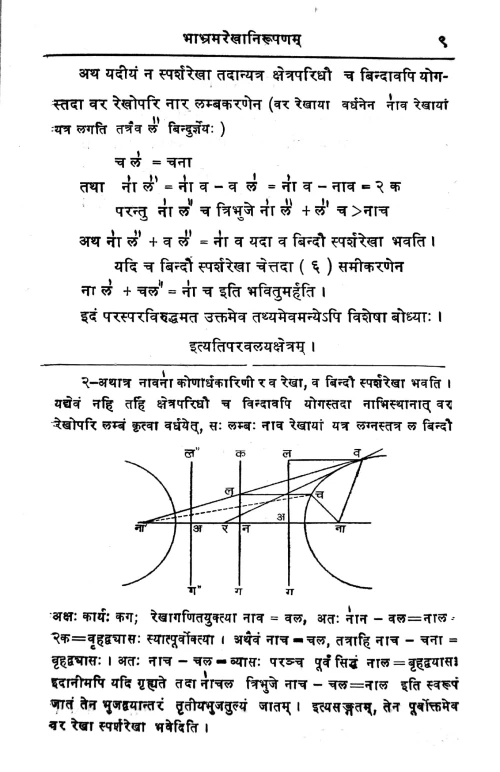 भाभ्रमरेखानिरूपणम्
९
अथ यदीयं न स्पर्शरेखा तदान्यत्र क्षेत्रपरिधौ च बिन्दावपि योग-
स्तदा वर रेखोपरि नार लम्बकरणेन (वर रेखाया वर्धनेन ना॑व रेखायां
यत्र लगति तत्रैव ल॑॑ बिन्दुर्ज्ञेयः )
च ल॑ = चना
तथा ना॑ ल॑॑ = ना॑ व - व ल॑ = ना॑ व - नाव = २ क
परन्तु ना॑ ल॑॑ च त्रिभुजे ना॑ ल॑॑ + ल॑॑ च >नाच
अथ ना॑ ल॑॑ + व ल॑॑ = ना॑ व यदा व बिन्दौ स्पर्शरेखा भवति ।
यदि च बिन्दौ स्पर्शरेखा चेत्तदा ( ६ ) समीकरणेन
ना ल॑ + चल" = ना॑ च इति भवितुमर्हति ।
इदं परस्परविरुद्धमत उक्तमेव तथ्यमेवमन्येऽपि विशेषा बोध्याः ।
इत्यतिपरवलयक्षेत्रम् ।
२-अथात्र नावना॑ कोणार्धकारिणी र व रेखा, व बिन्दौ स्पर्शरेखा भवति ।
यद्येवं नहि तर्हि क्षेत्रपरिधौ च विन्दावपि योगस्तदा नाभिस्थानात् वर
रेखोपरि लम्बं कृत्वा वर्धयेत्, सः लम्बः नाव रेखायां यत्र लग्नस्तत्र ल बिन्दौ
ल" क ल व
ल च
ना' अ र न अ ना
ग" ग ग
अक्षः कार्यः कग; रेखागणितयुक्त्या नाव = वल, अतः ना॑न - वल=नाल =
२क=वृहद्व्यासः स्यात्पूर्वोक्त्या । अथैवं नाच = चल, तत्राहि नाच - चना =
बृहद्व्यासः । अतः नाच - चल = व्यासः परञ्च पूर्वं सिद्धं नाल = बृहद्वयासः
इदानीमपि यदि गृह्यते तदा ना॑चल त्रिभुजे नाच - चल=नाल इति स्वरूपं
जातं तेन भुजद्वयान्तरं तृतीयभुजतुल्यं जातम् । इत्यसङ्गतम्, तेन पूर्वोक्तमेव
वर रेखा स्पर्शरेखा भवेदिति ।